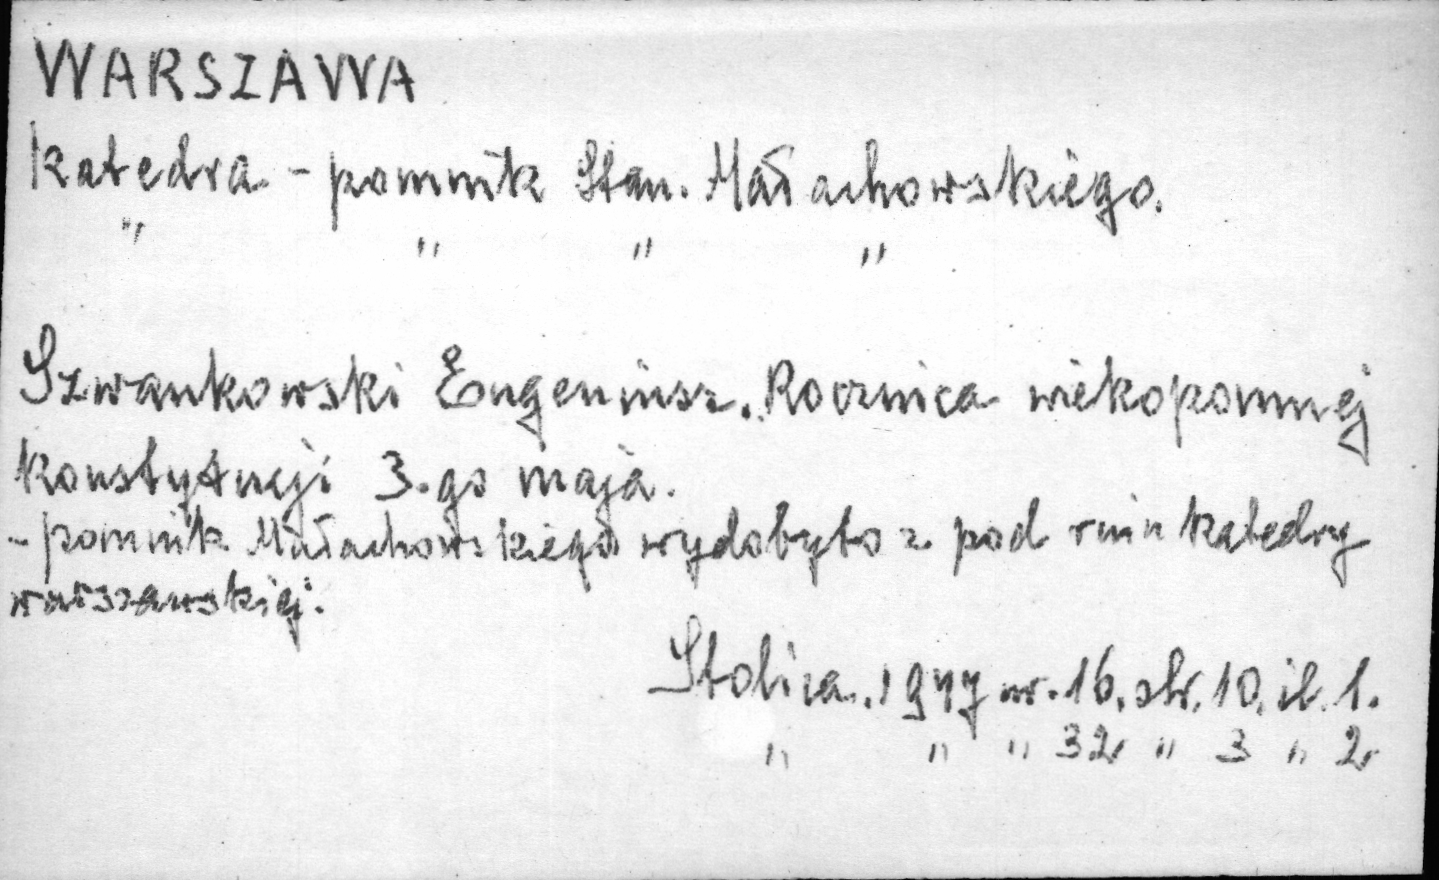 WARSZAWA
Katedra - pomnik Stan. Małachowskiego.
" " " "
Szwankowski Eugeniusz. Rocznica wiekopomnej
Konstytucji 3.go maja.
- pomnik Małachowskiego wydobyto z pod ruin katedry
warszawskiej.
Stolica. 1947 nr. 16. str. 10. il. 1.
" " " 32 " 3 " 2.